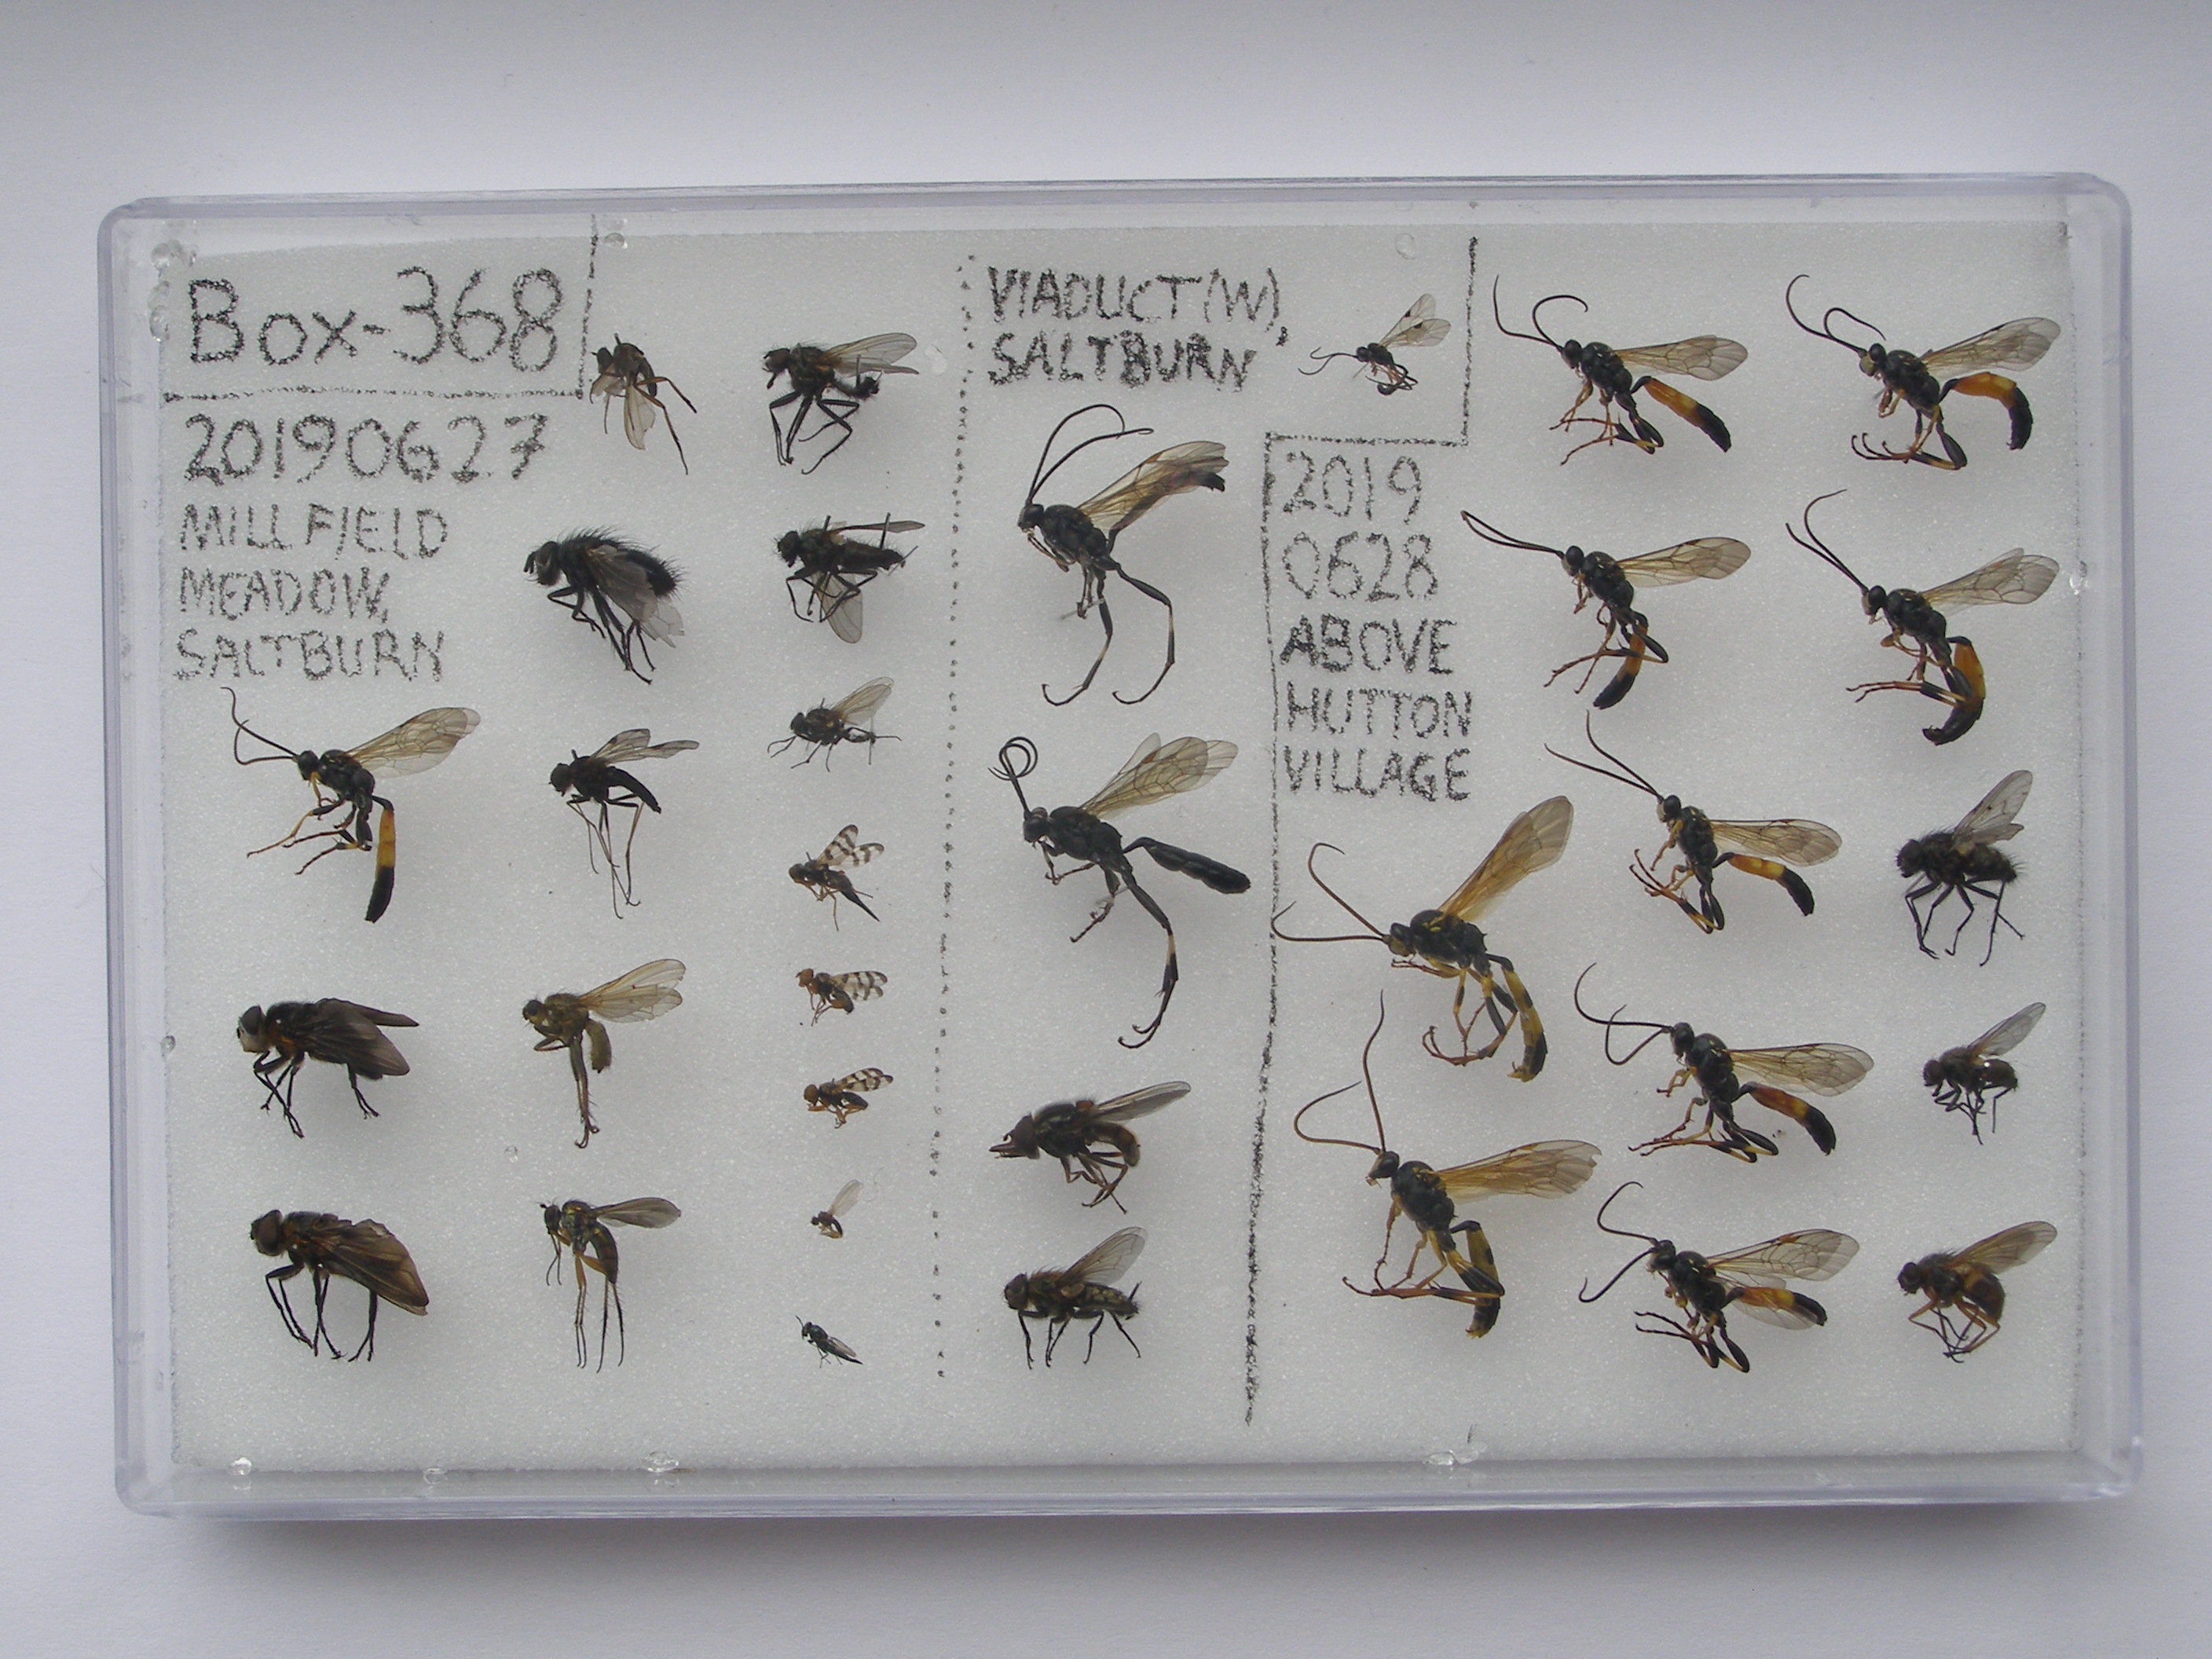 Box-368
20190627
MILL FIELD
MEADOW,
SALTBURN
VIADUCT (W),
SALTBURN
2019
0628
ABOVE
HUTTON
VILLAGE